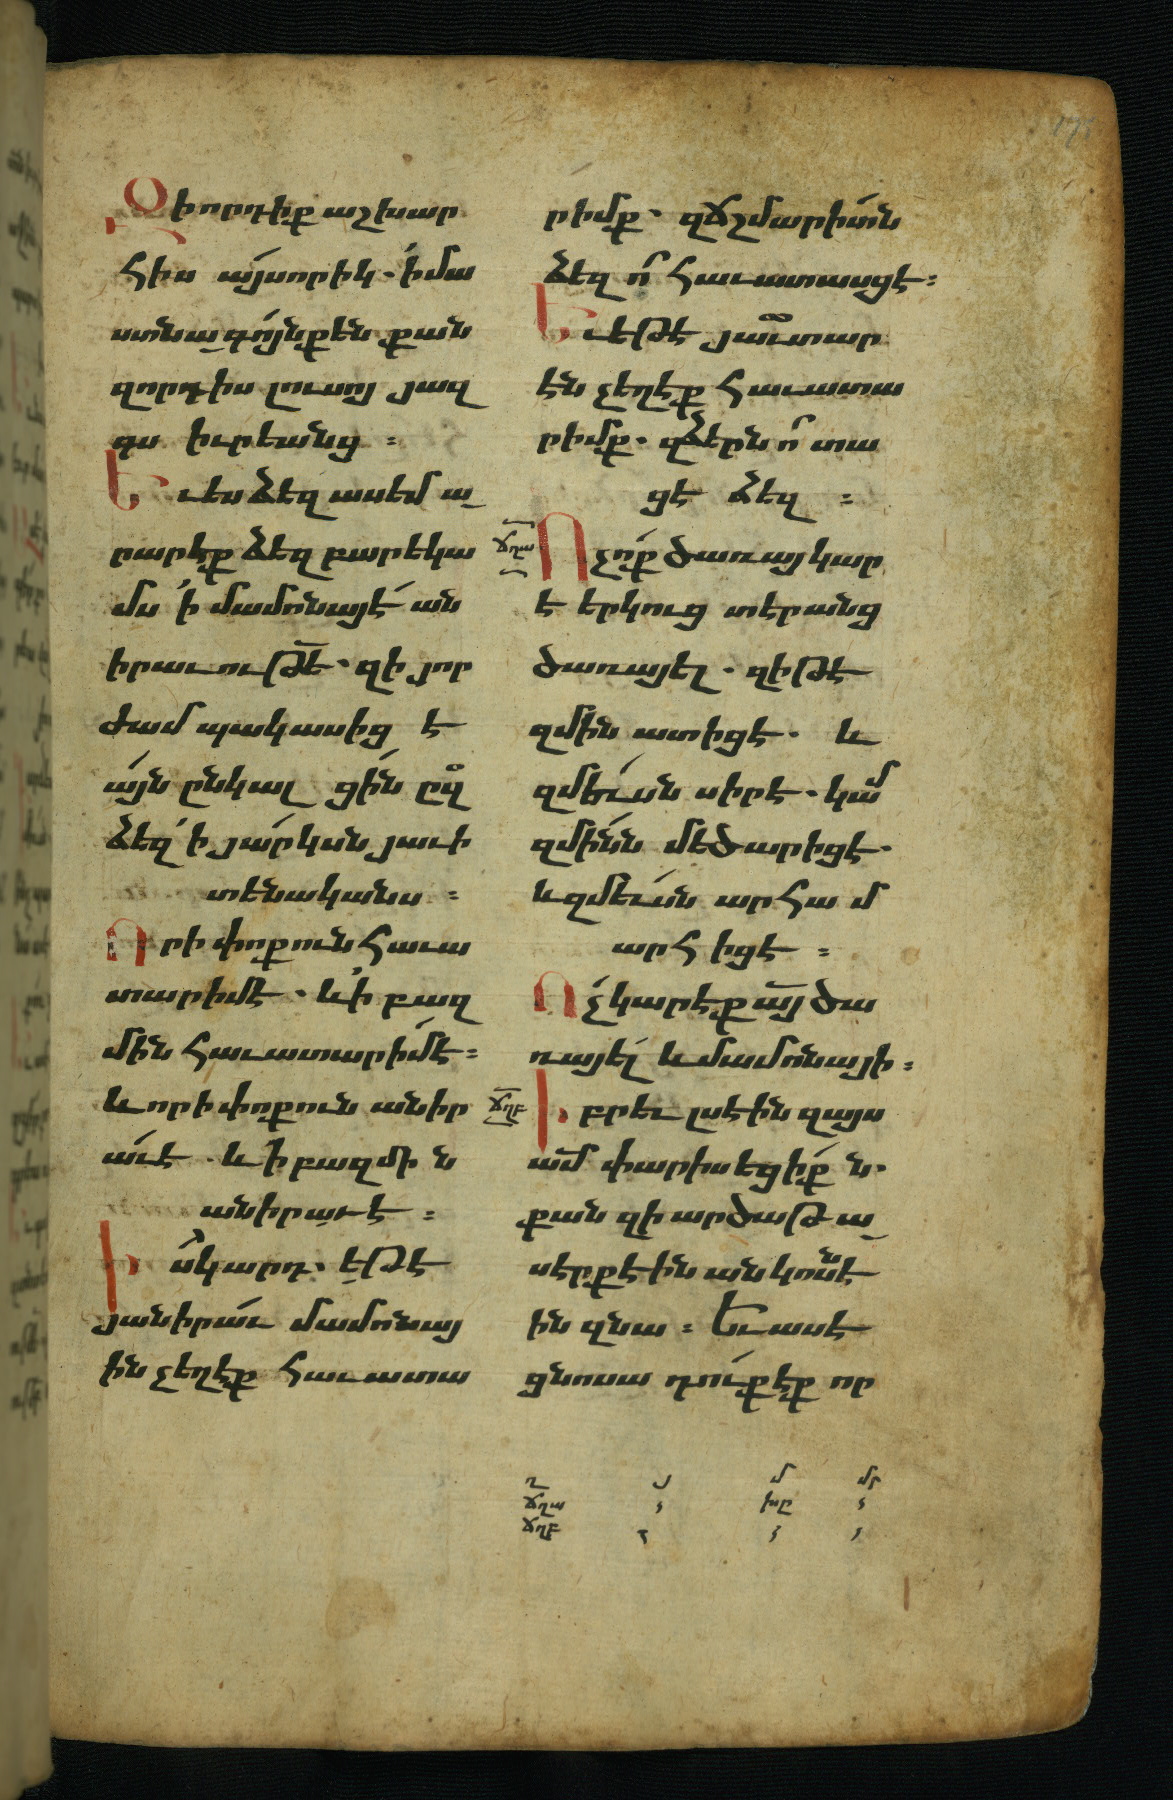 Զի որդիք աշխար
հիս այսորիկ. իմա
ստնագոյնք են քան
զորդիս լուսոյ յազ
գս իւրեանց ։
Եւ ես ձեզ ասեմ ա
րարէք ձեզ բարեկա
մս ի մամոնայէ ան
իրաւութե̄. զի յոր
ժամ պակասիցէ
այն ընկալցին ըզ
ձեզ ի յարկսն յաւի
տենականս ։
Որ ի փոքուն հաւա
տարիմ է. և ի բազ
մին հաւատարիմ է ։
և որ ի փոքուն անիր
աւ է. և ի բազմին
անիրաւ է ։
Իսկ արդ. եթէ
յանիրաւ մամոնայ
ին չեղէք հաւատա
րիմք. զճշմարիտն
ձեզ ո̄ հաւատասցէ ։
Եւ եթէ յաւտար
էն չեղէք հաւատա
րիմք. զձերն ո̄ տա
ցէ ձեզ ։
ճղա
Ոչ ոք ծառայ կար
է երկուց տերանց
ծառայել. զի թէ
զմին ատիցէ. և
զմեւսն սիրէ. կամ
զմինն մեծարիցէ.
և զմեւսն արհամ
արհիցէ ։
Ոչ կարէք ա̄յ ծա
ռայել և մամոնայի ։
ճղբ
Իբրեւ լսէին զայս
ա̄մ փարիսեցիքն.
քան զի արծաթա
սէրք էին անկոսնէ
ին զնա ։ Եւ ասէ
ցնոսա դուք էք որ
ղ յ մ մր
ճղա խը
ճղբ